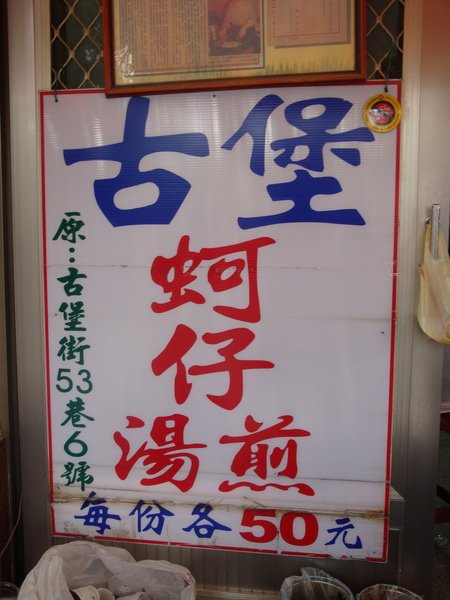 古堡
蚵
仔
湯煎
原:古堡街53巷6號
每份各50元